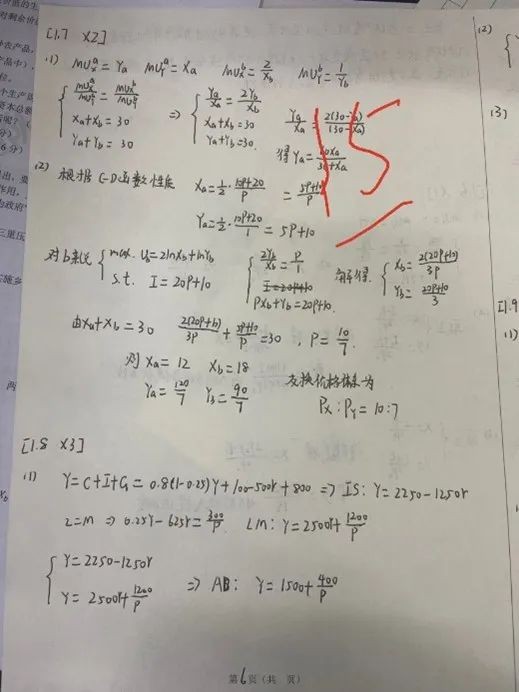 [1.7 X2]
(1) MUxᵃ = Ya MUyᵃ = Xa MUxᵇ = 2/Xb MUyᵇ = 1/Yb
{ MUxᵃ/MUyᵃ = MUxᵇ/MUyᵇ ⇒ { Ya/Xa = 2Yb/Xb Ya/Xa = 2(30-Ya)/(30-Xa)
Xa+Xb = 30 Xa+Xb = 30
Ya+Yb = 30 Ya+Yb = 30. 得 Ya = 60Xa/30+Xa
15
(2) 根据 C-D函数性质 Xa = 1/2 · 10P+20/P = 5P+10/P
Ya = 1/2 · 10P+20/1 = 5P+10
对b来说 { max. Ub = 2lnXb+lnYb { 2Yb/Xb = P/1 解得 { Xb = 2(20P+10)/3P
s.t. I = 20P+10 I = 20P+10 Yb = 20P+10/3
PXb+Yb = 20P+10.
由Xa+Xb = 30 2(20P+10)/3P + 5P+10/P = 30, P = 10/7.
则 Xa = 12 Xb = 18
Ya = 120/7 Yb = 90/7 交换价格体系为
Px : Py = 10 : 7
[1.8 X3]
(1) Y = C+I+G = 0.8(1-0.25)Y+100-500r+800 ⇒ IS: Y = 2250-1250r
L = M ⇒ 0.25Y-625r = 300/P LM: Y = 2500r+1200/P
{ Y = 2250-1250r
Y = 2500r+1200/P ⇒ AD: Y = 1500+400/P
第6页(共 页)
(2)
(3)
[1.9
(1)